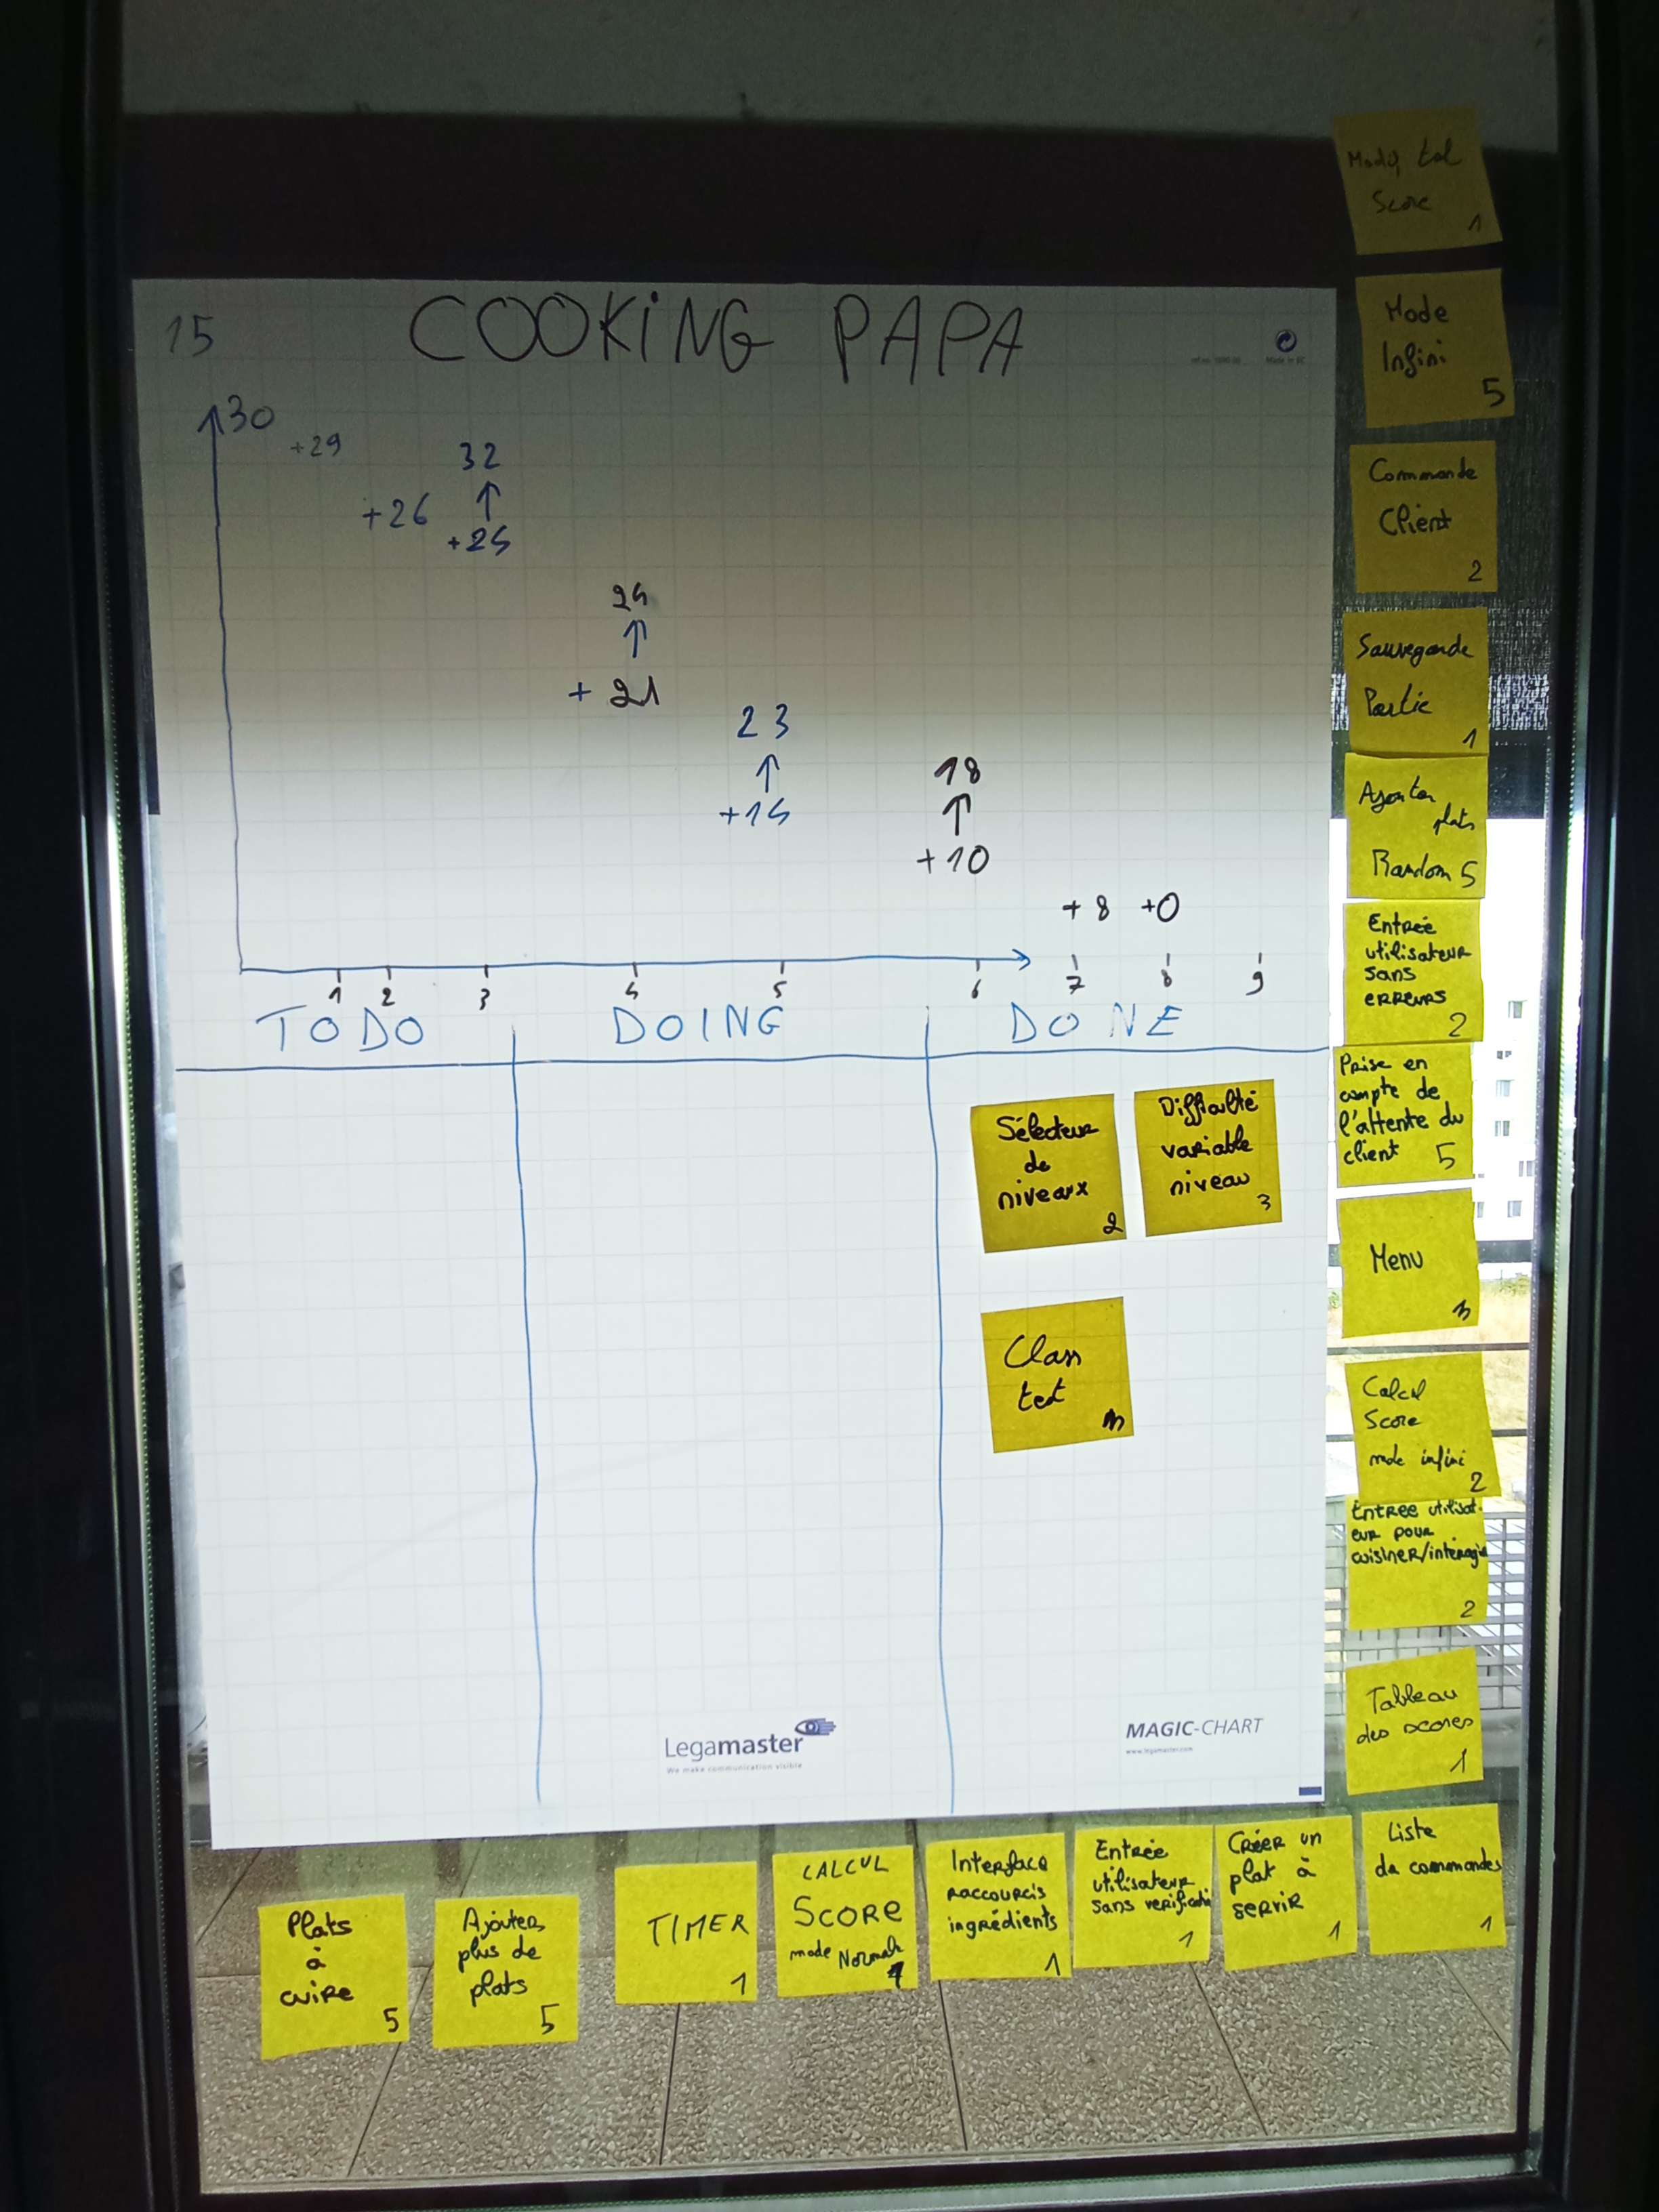 15
COOKING PAPA
Made in EC
30
+29
32
+26
+25
24
+ 21
23
+15
18
+10
+8 +0
1 2 3 4 5 6 7 8 9
TODO DOING DONE
Sélecteur
de
niveaux
2
Difficulté
variable
niveau
3
Class
test
3
Legamaster
We make communication visible
MAGIC-CHART
www.legamaster.com
Modif tal
Score
1
Mode
Infini
5
Commande
Client
2
Sauvegarde
Partie
1
Ajouter
plats
Random 5
Entrée
utilisateur
sans
erreurs
2
Prise en
compte de
l'attente du
client 5
Menu
3
Calcul
Score
mode infini
2
Entree utilisat-
eur pour
cuisiner/interagir
2
Tableau
des scores
1
Plats
à
cuire
5
Ajouter
plus de
plats
5
TIMER
1
CALCUL
SCORE
mode Normal
1
Interface
raccourcis
ingrédients
1
Entrée
utilisateur
sans verification
1
Créer un
plat à
servir
1
Liste
de commandes
1